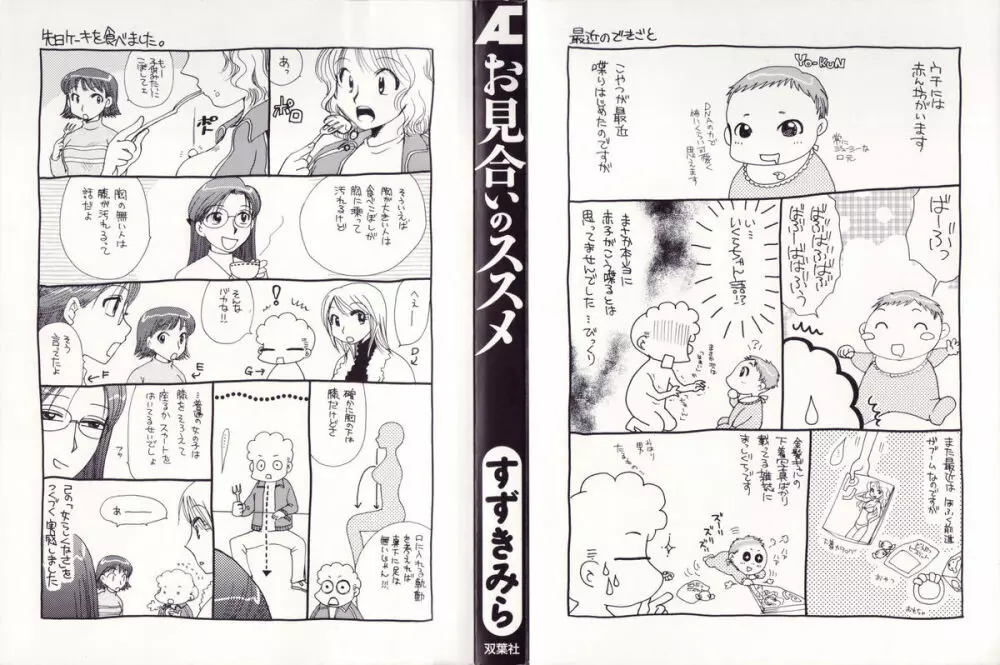 最近のできごと
YO-KUN
ウチには
赤ん坊がいます
常に
ジューシーな
口元
こやつが最近
喋りはじめたのですが
DNAの力で
怖いくらい可愛く
思えます
ばーぶっ
ばぶばぶばぶ
ばぶーばぶぅ
い…
いくらちゃん語!?
まさか本当に
赤子がこう喋るとは
思ってませんでした…びっくり
また最近は ほふく前進
がブームなのですが
おやつ
おもちゃ
全裸ぎみの
下着写真ばかり
載てる雑誌に
まっしぐらです
ズズーッ
ハァ
ハァ
やはり
男…
先日ケーキを食べました。
あっ
ポロ
もー
子供みたいに
こぼしてェ
ポト
そういえば
胸が大きい人は
食べこぼしが
胸に乗って
汚れるけど
胸の無い人は
膝が汚れるって
話だよ
へぇー
D
!
そんな
バカな!!
G
E
そう
言えたよ
F
確かに胸の下は
膝だけどさ
口に入れる軌動
を考えれば
真下に足は
無いじゃん!!!
…普通の女の子は
膝をそろえて
座るかスカートを
はいてるせいでしょ
あー
己の「女らしくなさ」を
つくづく実感しました
AC
お見合いのススメ
すずきみら
双葉社